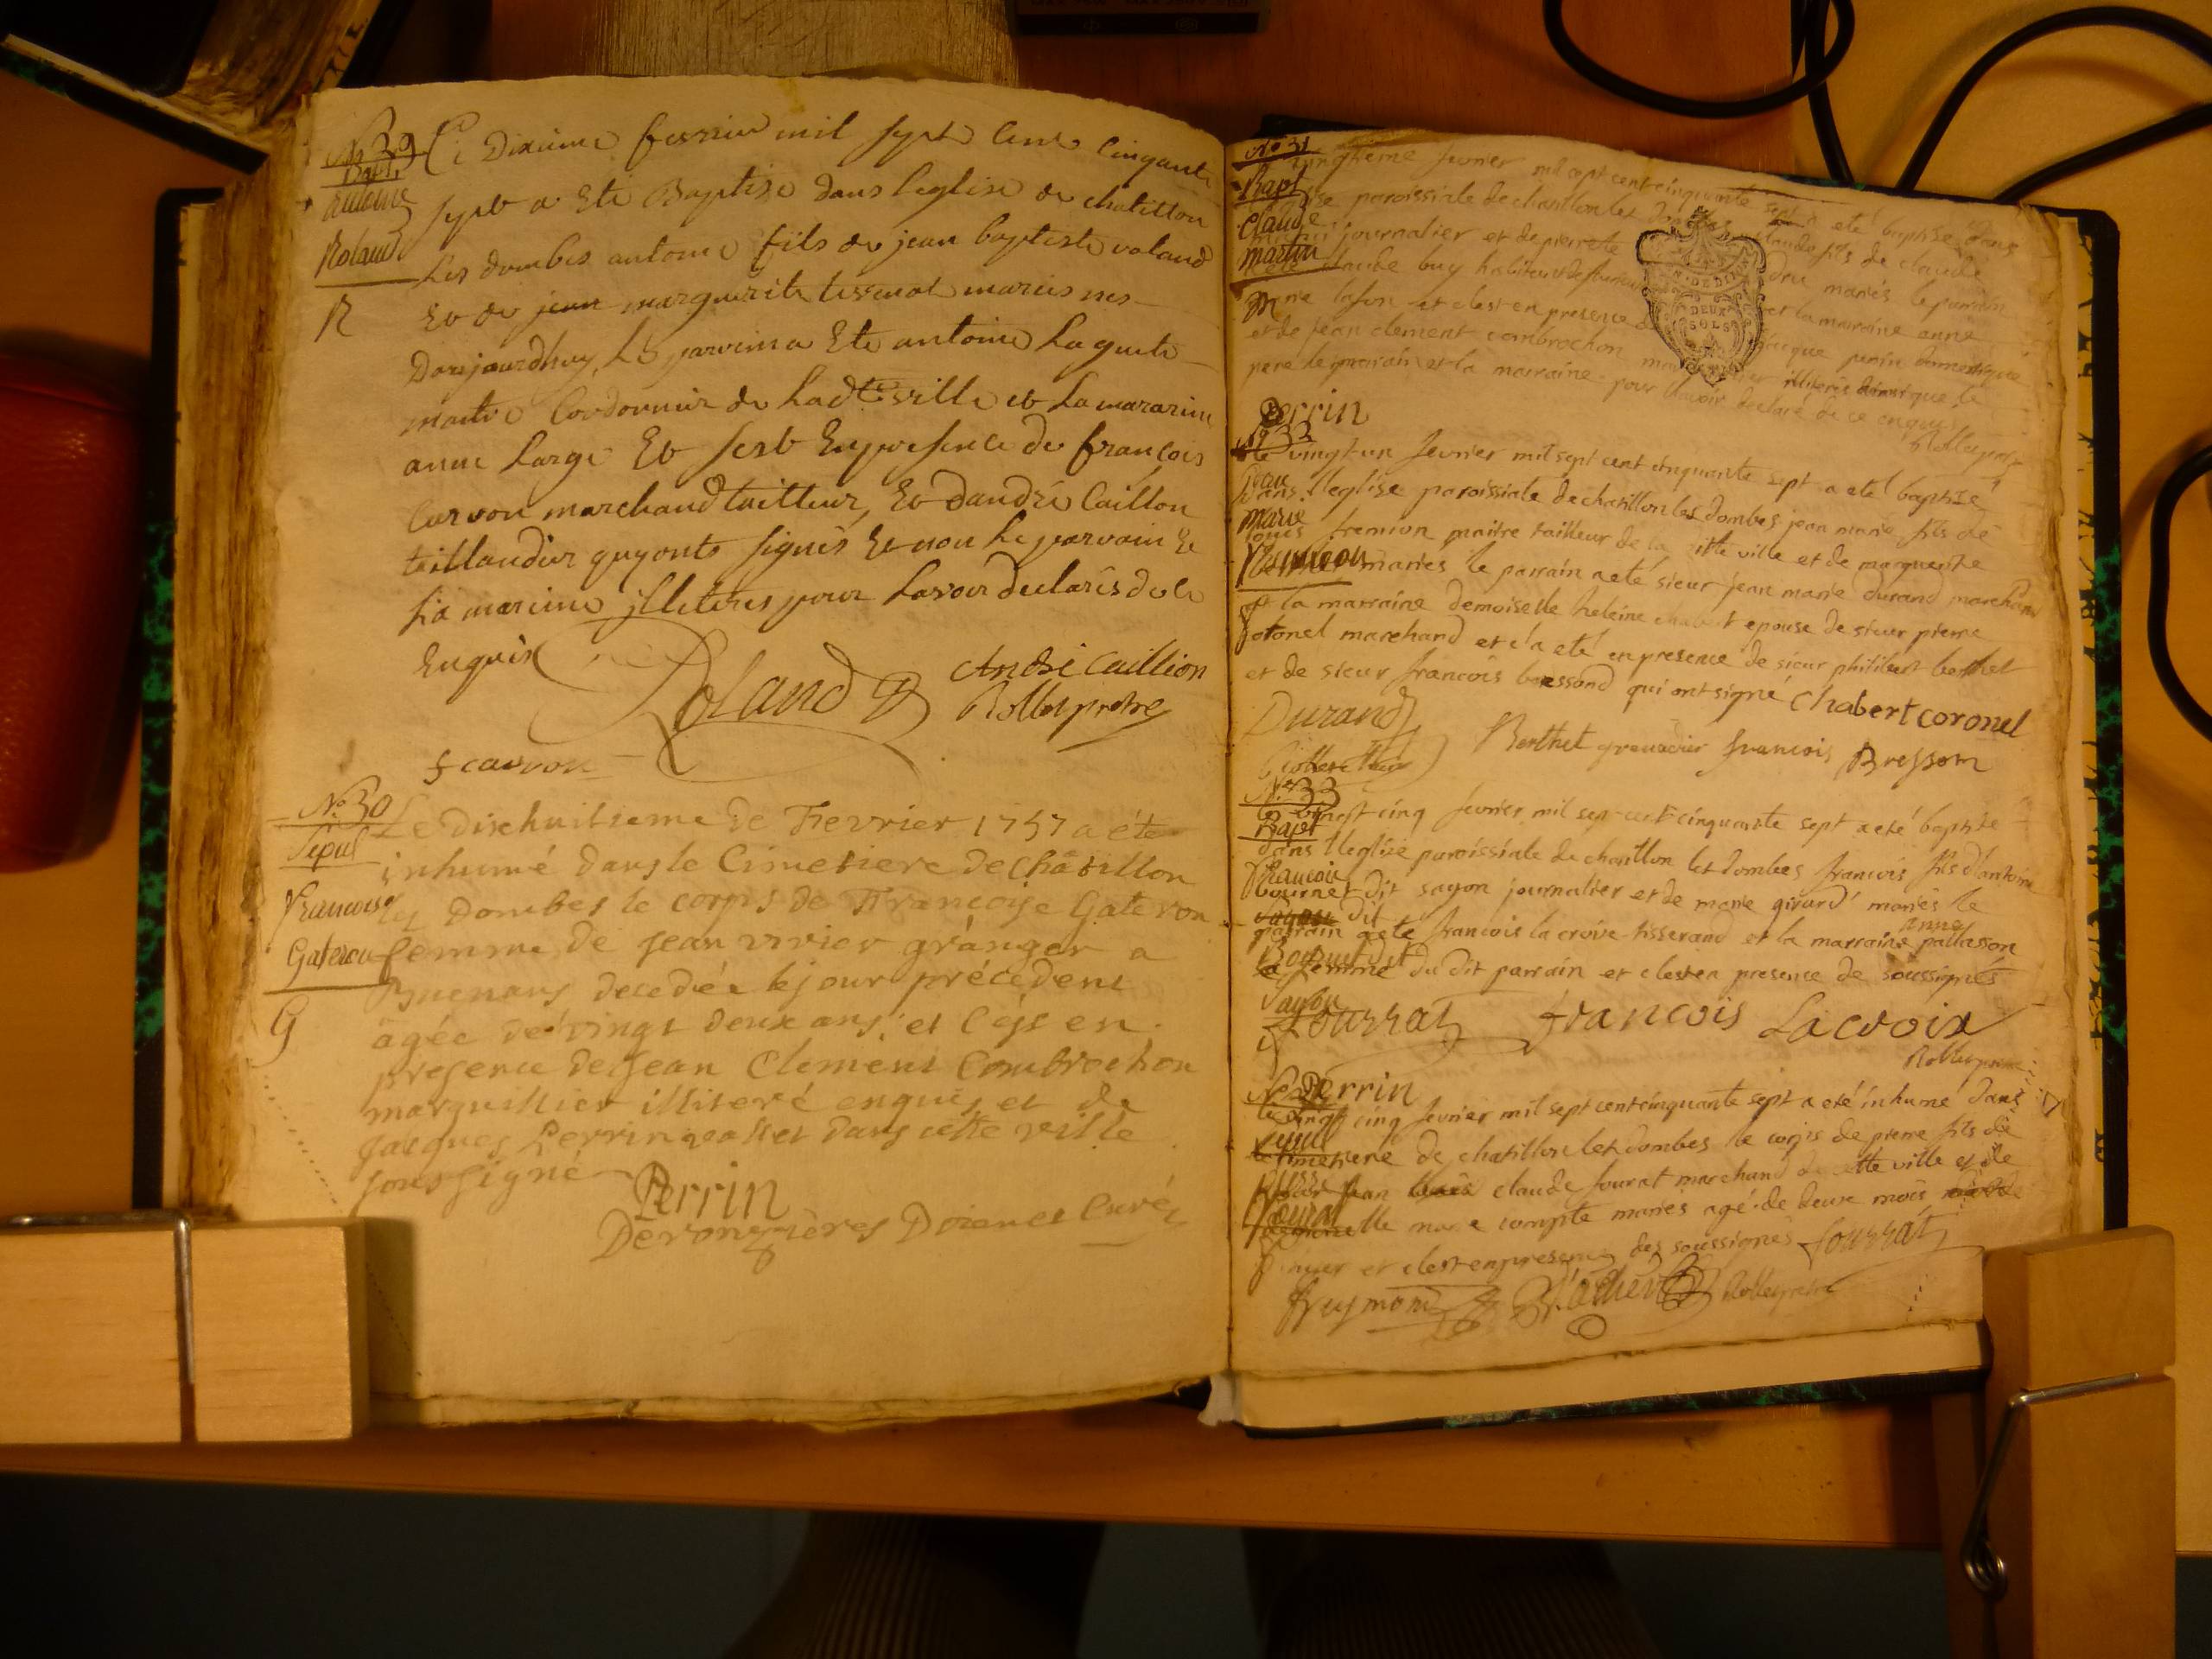 No 29
Bapt
antoine
Roland
R
Le Dixieme fevrier mil sept Cent Cinquante
sept a Eté Baptise dans l'eglise de chatillon
Les dombes antoine fils de jean baptiste roland
Et de jean marguerite tissenot mariés nés
Daujourdhuy, Le parvin a Eté antoine Laguete
maitre Cordonnier de Ladte ville et La mararine
anne Large Et sest En presence de françois
Curvon marchand tailleur, Et dandré Caillon
taillandier quy onts signés Et non Le parvain Et
La mareine jlliterés pour Lavoir declarés de ce
Enquis
Roland
André Caillion
Rollet pretre
f cauron
No. 30
Sepul
Francoise
Gateron
G
Le Dixhuitieme de Fievrier 1757 a été
inhumé dans le Cimetiere de Châtillon
les Dombes le corps de Françoise Gateron
femme de Jean vivier granger a
Buenans decedée le jour précédent
agée de vingt deux ans, et c'est en
presence de Jean Clement Combrochon
marguillier illiteré enquis et de
Jacques Perrin valet dans cette ville
soussigné
Perrin
Desrongières Doienet Curé
No 31
Bapt
Claude
martin
M
vingtieme fevrier mil sept cent cinquante sept a eté baptisé dans
paroissiale de chatillon les Dombes claude fils de claude
journalier et de pierrete Dru mariés le parrain
claude buy habitant de et la marraine anne
marie lafon et c'est en presence de perin domestique
et de jean clement combrochon illiterés ainsi que le
pere le parain et la marraine pour l'avoir declaré de ce enquis
Perrin
Rollet pre
No 32
le vingt-un fevrier mil sept cent cinquante sept a eté baptisé
Jean
dans l'eglise paroissiale de chatillon les dombes jean marie fils de
Marie
louis fremion maitre tailleur de la ditte ville et de marguerite
mariés le parrain a eté sieur jean marie durand marchand
et la marraine demoiselle heleine chabert epouse de sieur pierre
cotonel marchand et c'la eté en presence de sieur philibert berthet
et de sieur francois bressond qui ont signé chabert coronel
Durand
Berthet grenadier francois Bressom
No 33
le vingt cinq fevrier mil sep-cent cinquante sept a eté baptisé
Bapt
dans l'eglise paroissiale de chatillon les dombes francois fils d'antoine
Francois
bournet dit sayon journalier et de marie girard mariés le
sayon dit
parrain a eté francois la croix tisserand et la marraine anne pallasson
Bournet dit
la femme du dit parrain et c'lest en presence de soussignés
Sayon
Fourrat francois Lacroix
Rollet pretre
Perrin
le vingt cinq fevrier mil sept cent cinquante sept a eté inhumé dans
Sepul
le cimetiere de chatillon les dombes le corps de pierre fils de
Pierre
sieur jean claude fourat marchand de cette ville et de
fourat
demoiselle marie compte mariés agé de deux mois
et c'lest en presence des soussignés fourrat
freymond Rollet pretre
N. DE DIJON
DEUX
SOLS